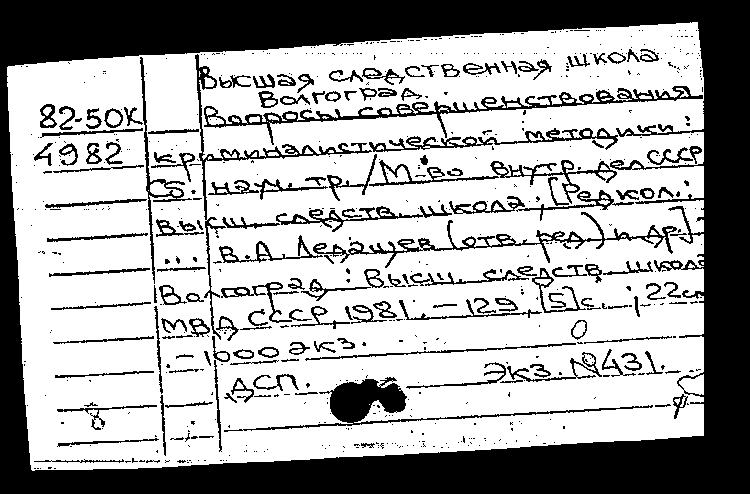 Высшая следственная школа
Волгоград.
82-50К Вопросы совершенствования
4982 криминалистической методики:
Сб. науч. тр. /М-во внутр. дел СССР
высш. следств. школа ; [Редкол.:
... В.А. Ледащев (отв. ред.) и др.] -
Волгоград : Высш. следств. школа
МВД СССР, 1981. - 129, [5] с. ; 22 см
. - 1000 экз.
ДСП. Экз. №431.
8